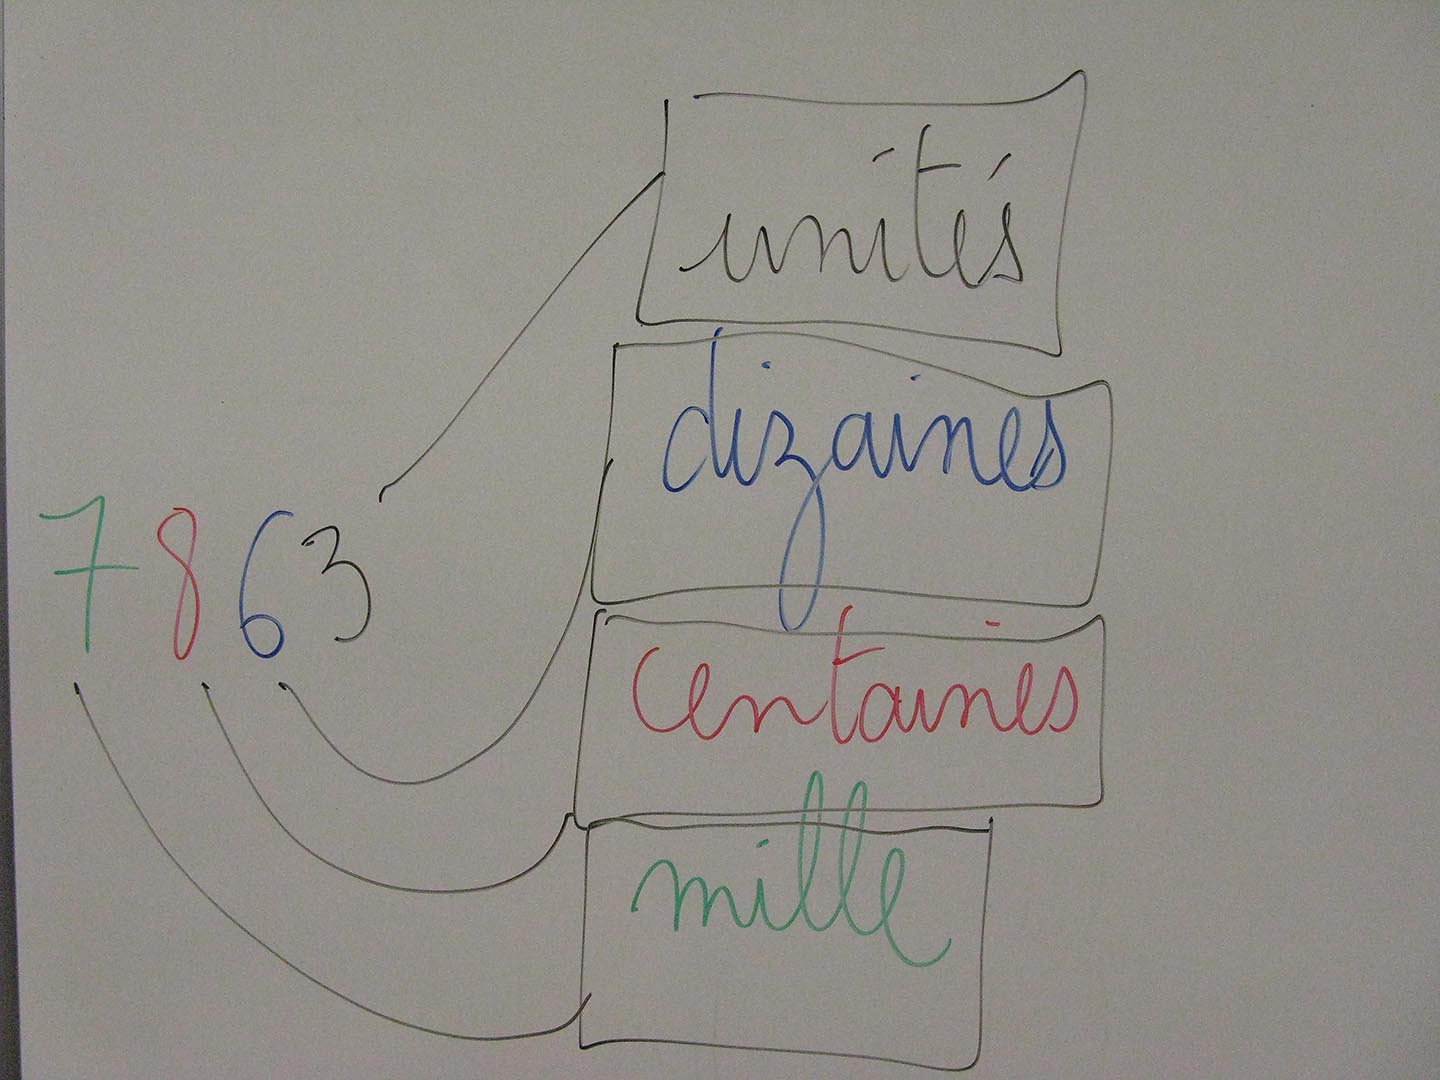 unités
dizaines
7863
centaines
mille